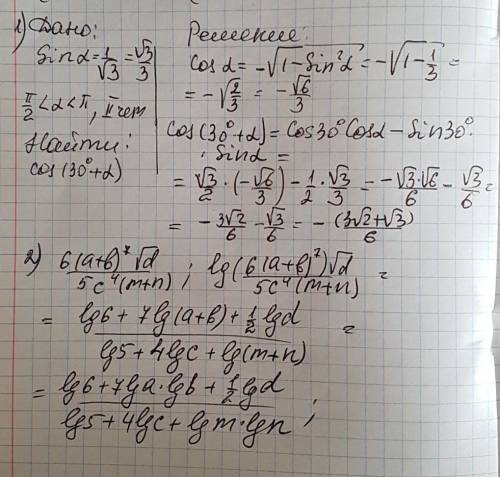 1) Дано:
Sinα = 1/√3 = √3/3
π/2 < α < π, II чет
Найти:
cos(30°+α)
Решение:
Cosα = -√(1-Sin²α) = -√(1-1/3) =
= -√(2/3) = -√6/3
Cos(30°+α) = Cos30°Cosα - Sin30°·
· Sinα =
= √3/2 · (-√6/3) - 1/2 · √3/3 = -√3·√6/6 - √3/6 =
= -3√2/6 - √3/6 = -(3√2+√3)/6
2) 6(a+b)⁷√d / 5c⁴(m+n) ; lg(6(a+b)⁷)√d / 5c⁴(m+n) =
= lg6 + 7lg(a+b) + ½lgd / lg5 + 4lgc + lg(m+n) =
= lg6 + 7lga·lgb + ½lgd / lg5 + 4lgc + lgm·lgn ;